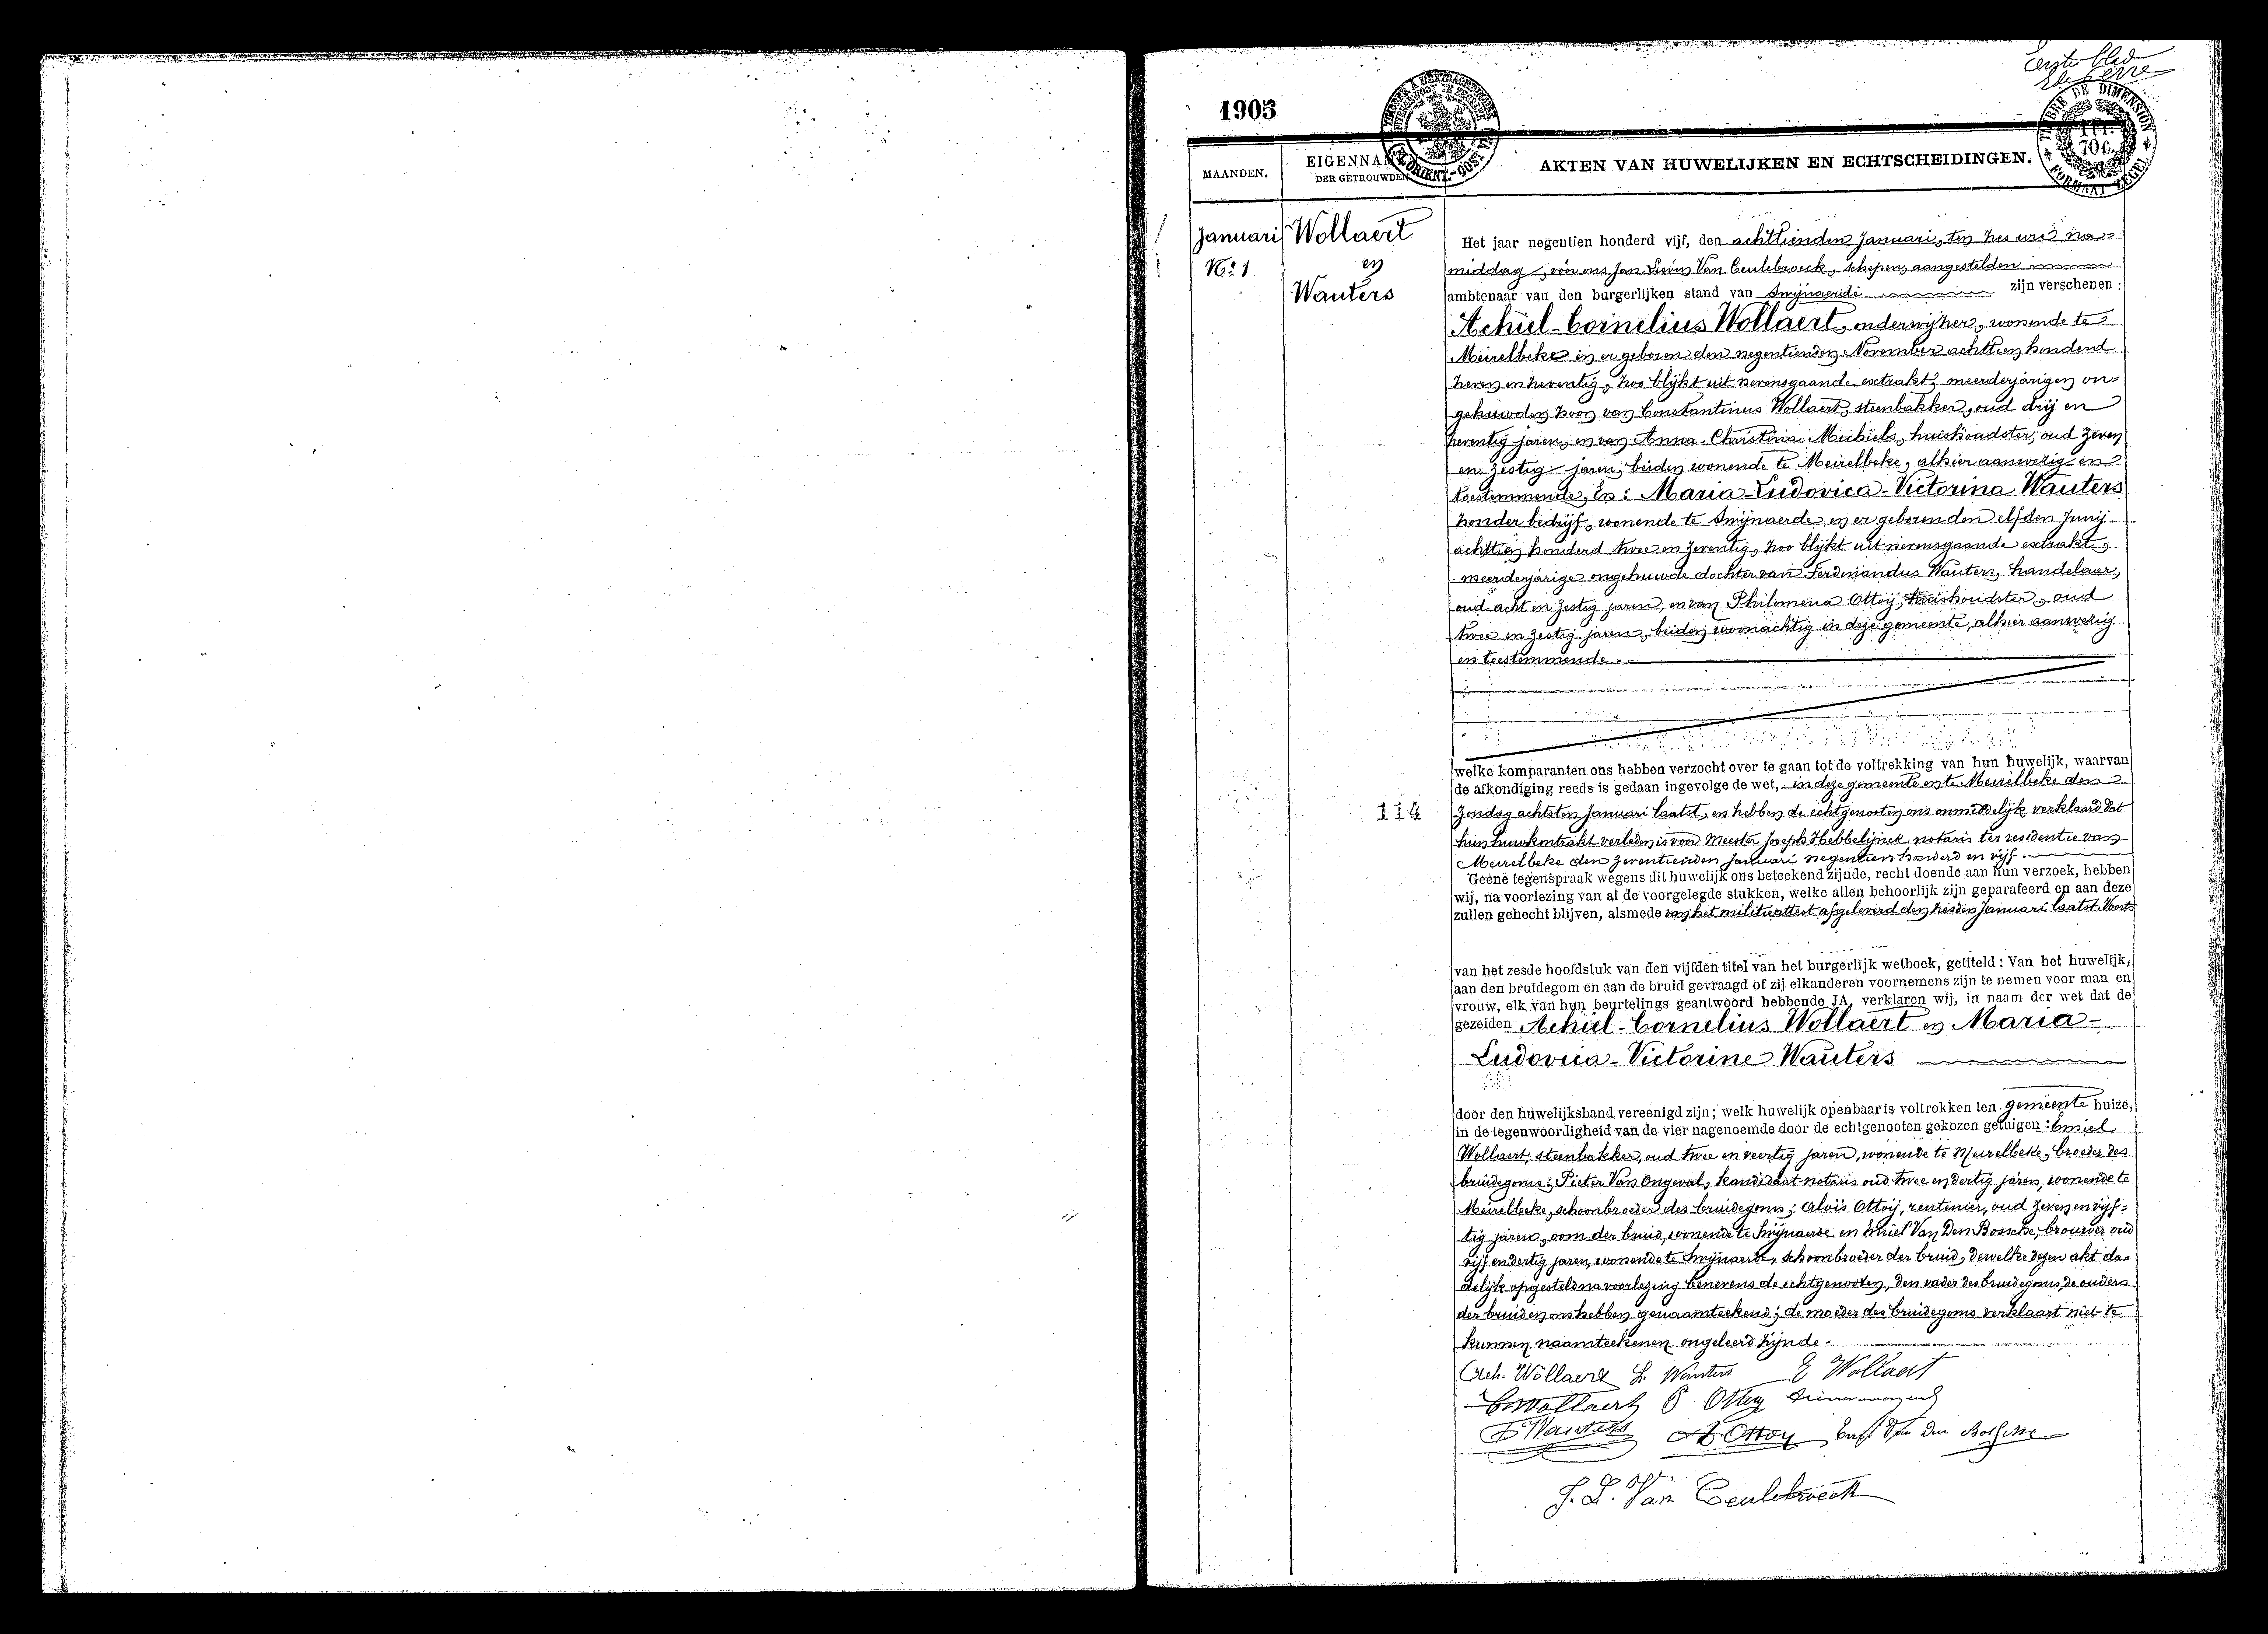 Eerste blad
1905
MAANDEN.
EIGENNAMEN
DER GETROUWDEN
AKTEN VAN HUWELIJKEN EN ECHTSCHEIDINGEN.
TIMBRE DE DIMENSION
FORMAAT ZEGEL
Januari
No. 1
Wollaert
en
Wauters
Het jaar negentien honderd vijf, den achttienden Januari, ten zes ure na=
middag, vóór ons Jan Lievin Van Ceulebroeck, schepen, aangestelden
ambtenaar van den burgerlijken stand van Swijnaerde zijn verschenen:
Achiel-Cornelius Wollaert, onderwijzer, wonende te
Meirelbeke en er geboren den negentienden November achttien honderd
zeven en zeventig, zoo blijkt uit nevensgaande extrakt, meerderjarigen on=
gehuwden zoon van Constantinus Wollaert, steenbakker, oud drij en
zeventig jaren, en van Anna-Christina Michiels, huishoudster, oud zeven
en zestig jaren, beiden wonende te Meirelbeke, alhier aanwezig en
toestemmende, En: Maria-Ludovica-Victorina Wauters
zonder bedrijf, wonende te Swijnaerde en er geboren den elfden Junij
achttien honderd twee en zeventig, zoo blijkt uit nevensgaande extrakt,
meerderjarige ongehuwde dochter van Ferdinandus Wauters, handelaar,
oud acht en zestig jaren, en van Philomena Ottoy, huishoudster, oud
twee en zestig jaren, beiden woonachtig in deze gemeente, alhier aanwezig
en toestemmende.
welke komparanten ons hebben verzocht over te gaan tot de voltrekking van hun huwelijk, waarvan
de afkondiging reeds is gedaan ingevolge de wet, in deze gemeente en te Meirelbeke den
114
Zondag achtsten Januari laatst, en hebben de echtgenooten ons onmiddelijk verklaard dat
hun huwkontrakt verleden is voor Meester Joseph Hebbelynck notaris ter residentie van
Meirelbeke den zeventienden Januari negentien honderd en vijf.
Geene tegenspraak wegens dit huwelijk ons beteekend zijnde, recht doende aan hun verzoek, hebben
wij, na voorlezing van al de voorgelegde stukken, welke allen behoorlijk zijn geparafeerd en aan deze
zullen gehecht blijven, alsmede van het militieattest afgeleverd den zesden Januari laatst. Voorts
van het zesde hoofdstuk van den vijfden titel van het burgerlijk wetboek, getiteld: Van het huwelijk,
aan den bruidegom en aan de bruid gevraagd of zij elkanderen voornemens zijn te nemen voor man en
vrouw, elk van hun beurtelings geantwoord hebbende JA, verklaren wij, in naam der wet dat de
gezeiden Achiel-Cornelius Wollaert en Maria-
Ludovica-Victorine Wauters
door den huwelijksband vereenigd zijn; welk huwelijk openbaar is voltrokken ten gemeente huize,
in de tegenwoordigheid van de vier nagenoemde door de echtgenooten gekozen getuigen: Emiel
Wollaert, steenbakker, oud twee en veertig jaren, wonende te Meirelbeke, broeder des
bruidegoms; Pieter Van Ongeval, kandidaat-notaris oud twee en dertig jaren, wonende te
Meirelbeke, schoonbroeder des bruidegoms; Aloïs Ottoy, rentenier, oud zeven en vijf=
tig jaren, oom der bruid, wonende te Swijnaerde en Emiel Van Den Bossche, brouwer oud
vijf en dertig jaren, wonende te Swijnaerde, schoonbroeder der bruid, dewelke dezen akt da=
delijk opgesteld na voorlezing benevens de echtgenooten, den vader des bruidegoms, de ouders
der bruid en ons hebben genaamteekend; de moeder des bruidegoms verklaart niet te
kunnen naamteekenen ongeleerd zijnde.
Ach. Wollaert L. Wauters E Wollaert
C. Wollaert P Ottoy
F Wauters A. Ottoy Van Den Bossche
J. L. Van Ceulebroeck